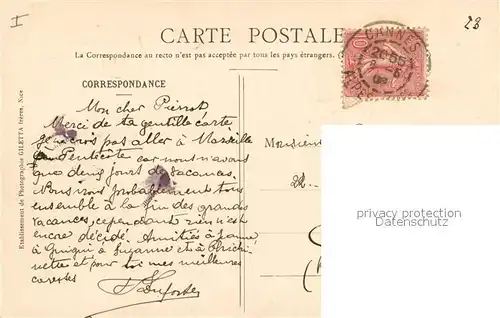 I
28
CARTE POSTALE
La Correspondance au recto n'est pas acceptée par tous les pays étrangers.
CANNES
CORRESPONDANCE
Mon cher Pierrot
Merci de ta gentille carte
je ne crois pas aller à Marseille
Pentecôte car nous n'avons
que deux jours de vacances.
Nous irons probablement tous
ensemble à la fin des grandes
vacances, cependant rien n'est
encore décidé. Amitiés à Jeanne
à Guigui à Suzanne et à
nette et pour toi mes meilleures
caresses
Monsieur
22
privacy protection
Datenschutz
Etablissement de Photographie GILETTA frères, Nice